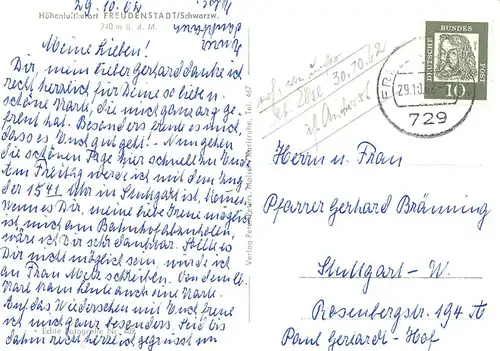 29.10.62
Höhenluftkurort FREUDENSTADT/Schwarzw.
740 m ü. d. M.
Meine Lieben!
Dir, mein lieber Gerhard danke ich
recht herzlich für Deine so liebe
schöne Karte, die mich ganz arg ge-
freut hat. Besonders freut es mich,
dass es Euch gut geht! - Nun gehen
die schönen Tage hier schnell zu Ende.
Am Freitag werde ich mit dem Zug
der 15.41 Uhr in Stuttgart ist, kommen.
Wenn es Dir, meine liebe Irene möglich
ist, mich am Bahnhof abzuholen,
wäre ich Dir sehr dankbar. Sollte es
Dir nicht möglich sein, würde ich
an Frau schreiben. Von dem lb.
Karl kam heute auch eine Karte.
Auf das Wiedersehen mit Euch freue
ich mich ganz besonders. Seid bis
dahin recht herzlich gegrüsst von
Echte Fotografie Nr.
Verlag Karlsruhe, Tel. 467
30.10.62
DEUTSCHE BUNDESPOST
10
29.10.62
729
Herrn u. Frau
Pfarrer Gerhard Bräuning
Stuttgart-W.
Rosenbergstr. 194 A
Paul Gerhardt-Hof